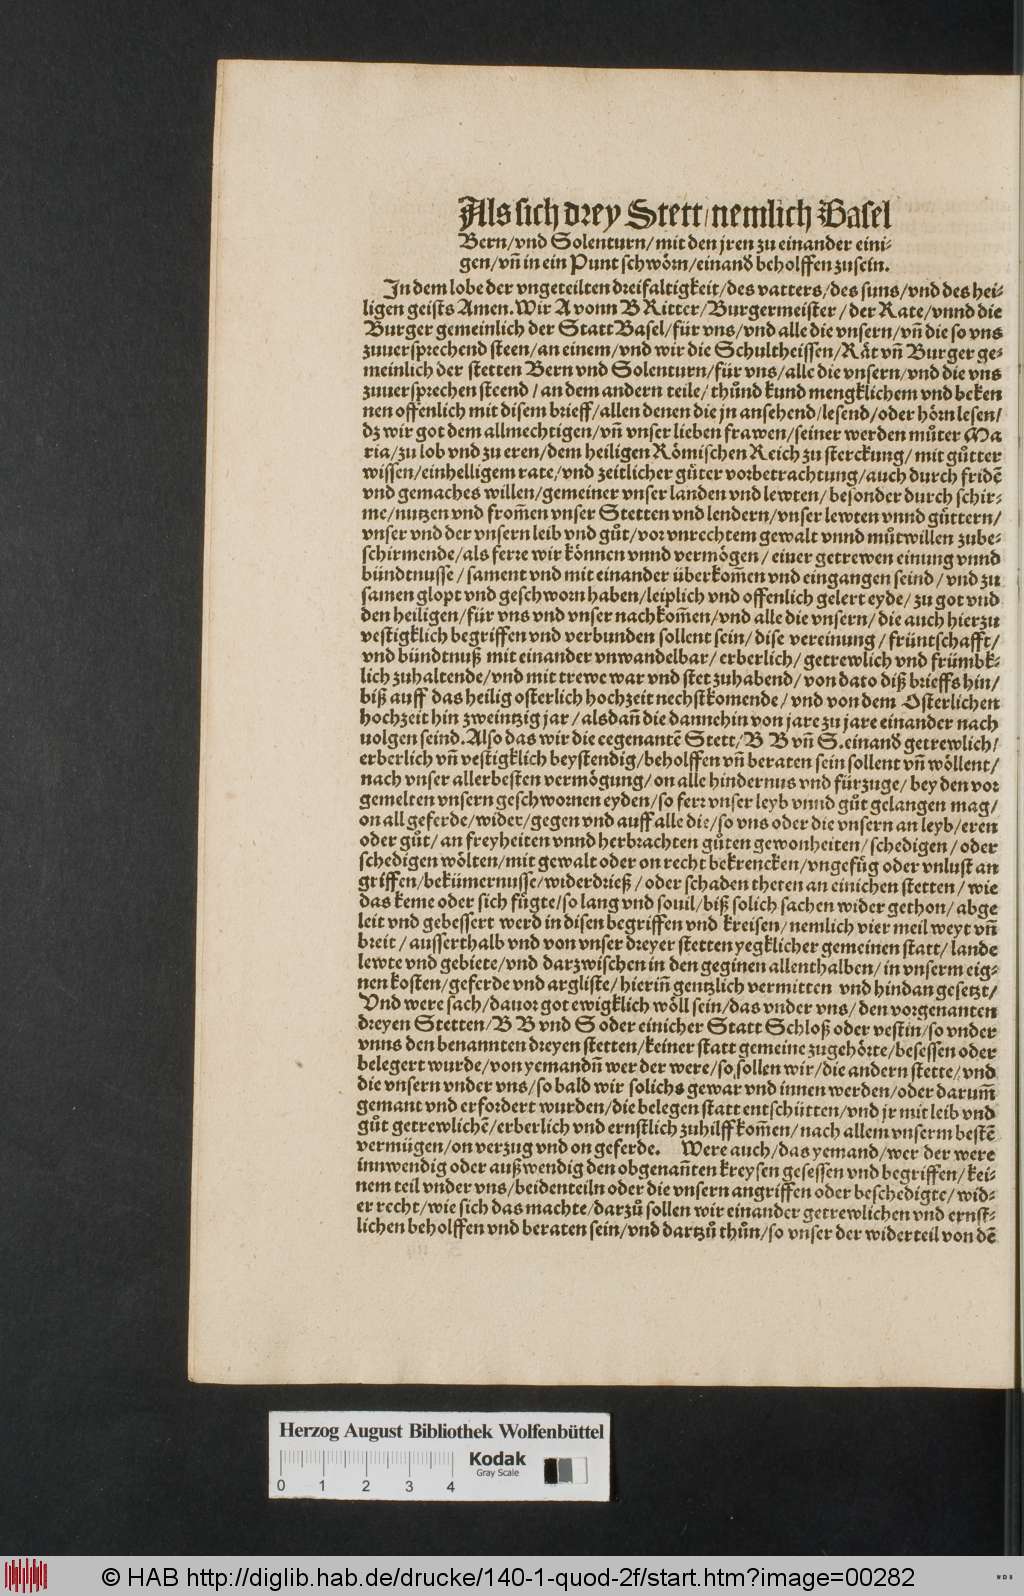 Als sich drey Stett/nemlich Basel
Bern/vnd Solenturn/mit den jren zu einander eini-
gen/vñ in ein Punt schwörn/einand beholffen zusein.
In dem lobe der vngeteilten dreifaltigkeit/des vatters/des suns/vnd des hei-
ligen geists Amen. Wir A vonn B Ritter/Burgermeister/der Rate/vnnd die
Burger gemeinlich der Statt Basel/für vns/vnd alle die vnsern/vñ die so vns
zuuersprechend steen/an einem/vnd wir die Schultheissen/Rät vñ Burger ge-
meinlich der stetten Bern vnd Solenturn/für vns/alle die vnsern/vnd die vns
zuuersprechen steend/an dem andern teile/thůnd kund mengklichem vnd beken
nen offenlich mit disem brieff/allen denen die jn ansehend/lesend/oder hörn lesen/
dz wir got dem allmechtigen/vñ vnser lieben frawen/seiner werden můter Ma
ria/zu lob vnd zu eren/dem heiligen Römischen Reich zu sterckung/mit gůtter
wissen/einhelligem rate/vnd zeitlicher gůter vorbetrachtung/auch durch fridẽ
vnd gemaches willen/gemeiner vnser landen vnd lewten/besonder durch schir-
me/nutzen vnd from̃en vnser Stetten vnd lendern/vnser lewten vnnd gůttern/
vnser vnd der vnsern leib vnd gůt/vor vnrechtem gewalt vnnd můtwillen zube-
schirmende/als ferre wir können vnnd vermögen/einer getrewen einung vnnd
bündtnusse/sament vnd mit einander überkom̃en vnd eingangen seind/vnd zu
samen glopt vnd geschworn haben/leiplich vnd offenlich gelert eyde/zu got vnd
den heiligen/für vns vnd vnser nachkom̃en/vnd alle die vnsern/die auch hierzu
vestigklich begriffen vnd verbunden sollent sein/dise vereinung/früntschafft/
vnd bündtnuß mit einander vnwandelbar/erberlich/getrewlich vnd frümbk-
lich zuhaltende/vnd mit trewe war vnd stet zuhabend/von dato diß brieffs hin/
biß auff das heilig osterlich hochzeit nechstkomende/vnd von dem Osterlichen
hochzeit hin zweintzig jar/alsdañ die dannehin von jare zu jare einander nach
uolgen seind. Also das wir die eegenantẽ Stett/B B vñ S. einand getrewlich/
erberlich vñ vestigklich beystendig/beholffen vñ beraten sein sollent vñ wöllent/
nach vnser allerbesten vermögung/on alle hindernus vnd fürzuge/bey den vor
gemelten vnsern geschwornen eyden/so ferr vnser leyb vnnd gůt gelangen mag/
on all geferde/wider/gegen vnd auff alle die/so vns oder die vnsern an leyb/eren
oder gůt/an freyheiten vnnd herbrachten gůten gewonheiten/schedigen/oder
schedigen wölten/mit gewalt oder on recht bekrencken/vngefůg oder vnlust an
griffen/bekümernusse/widerdrieß/oder schaden theten an einichen stetten/wie
das keme oder sich fůgte/so lang vnd souil/biß solich sachen wider gethon/abge
leit vnd gebessert werd in disen begriffen vnd kreisen/nemlich vier meil weyt vñ
breit/ausserthalb vnd von vnser dreyer stetten yegklicher gemeinen statt/lande
lewte vnd gebiete/vnd darzwischen in den geginen allenthalben/in vnserm eig-
nen kosten/geferde vnd argliste/hieriñ gentzlich vermitten vnd hindan gesetzt/
Vnd were sach/dauor got ewigklich wöll sein/das vnder vns/den vorgenanten
dreyen Stetten/B B vnd S oder einicher Statt Schloß oder vestin/so vnder
vnns den benannten dreyen stetten/keiner statt gemeine zugehörte/besessen oder
belegert wurde/von yemandñ wer der were/so sollen wir/die andern stette/vnd
die vnsern vnder vns/so bald wir solichs gewar vnd innen werden/oder darum̃
gemant vnd erfordert wurden/die belegen statt entschütten/vnd jr mit leib vnd
gůt getrewlichẽ/erberlich vnd ernstlich zuhilff kom̃en/nach allem vnserm bestẽ
vermügen/on verzug vnd on geferde. Were auch/das yemand/wer der were
innwendig oder außwendig den obgenañten kreysen gesessen vnd begriffen/kei-
nem teil vnder vns/beidenteiln oder die vnsern angriffen oder beschedigte/wid-
er recht/wie sich das machte/darzů sollen wir einander getrewlichen vnd ernst-
lichen beholffen vnd beraten sein/vnd dartzů thůn/so vnser der widerteil von dẽ
Herzog August Bibliothek Wolfenbüttel
0 1 2 3 4
Kodak
Gray Scale
© HAB http://diglib.hab.de/drucke/140-1-quod-2f/start.htm?image=00282